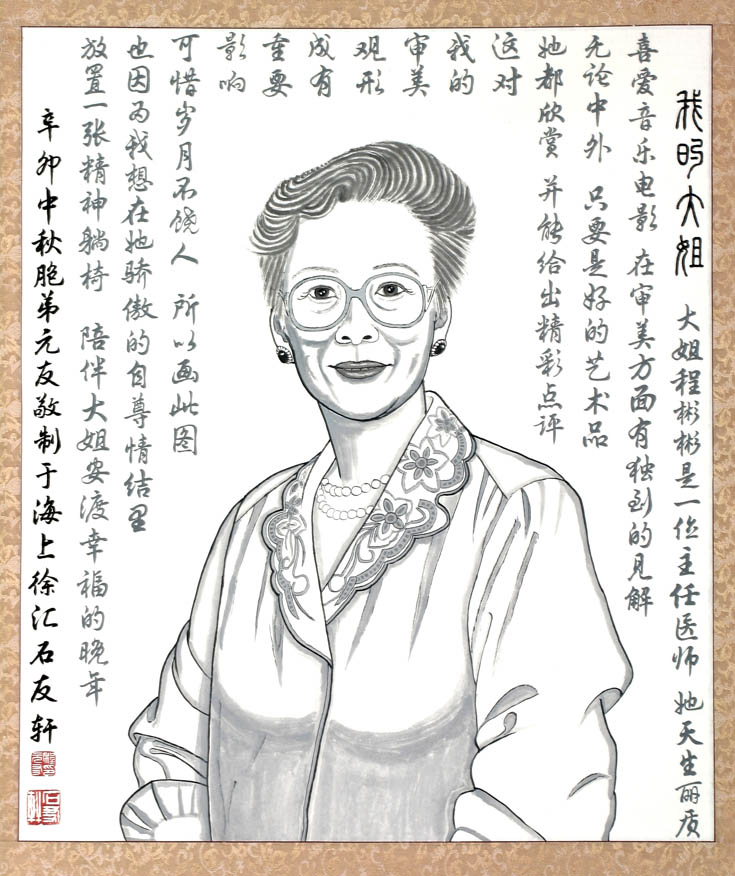 我的大姐
大姐程彬彬是一位主任医师 她天生丽质
喜爱音乐电影 在审美方面有独到的见解
无论中外 只要是好的艺术品
她都欣赏 并能给出精彩点评
这对
我的
审美
观形
成有
重要
影响
可惜岁月不饶人 所以画此图
也因为我想在她骄傲的自尊情结里
放置一张精神躺椅 陪伴大姐安渡幸福的晚年
辛卯中秋胞弟元友敬制于海上徐汇石友轩